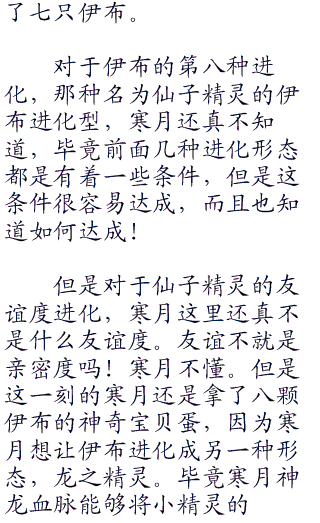 了七只伊布。
对于伊布的第八种进
化，那种名为仙子精灵的伊
布进化型，寒月还真不知
道，毕竟前面几种进化形态
都是有着一些条件，但是这
条件很容易达成，而且也知
道如何达成！
但是对于仙子精灵的友
谊度进化，寒月这里还真不
是什么友谊度。友谊不就是
亲密度吗！寒月不懂。但是
这一刻的寒月还是拿了八颗
伊布的神奇宝贝蛋，因为寒
月想让伊布进化成另一种形
态，龙之精灵。毕竟寒月神
龙血脉能够将小精灵的